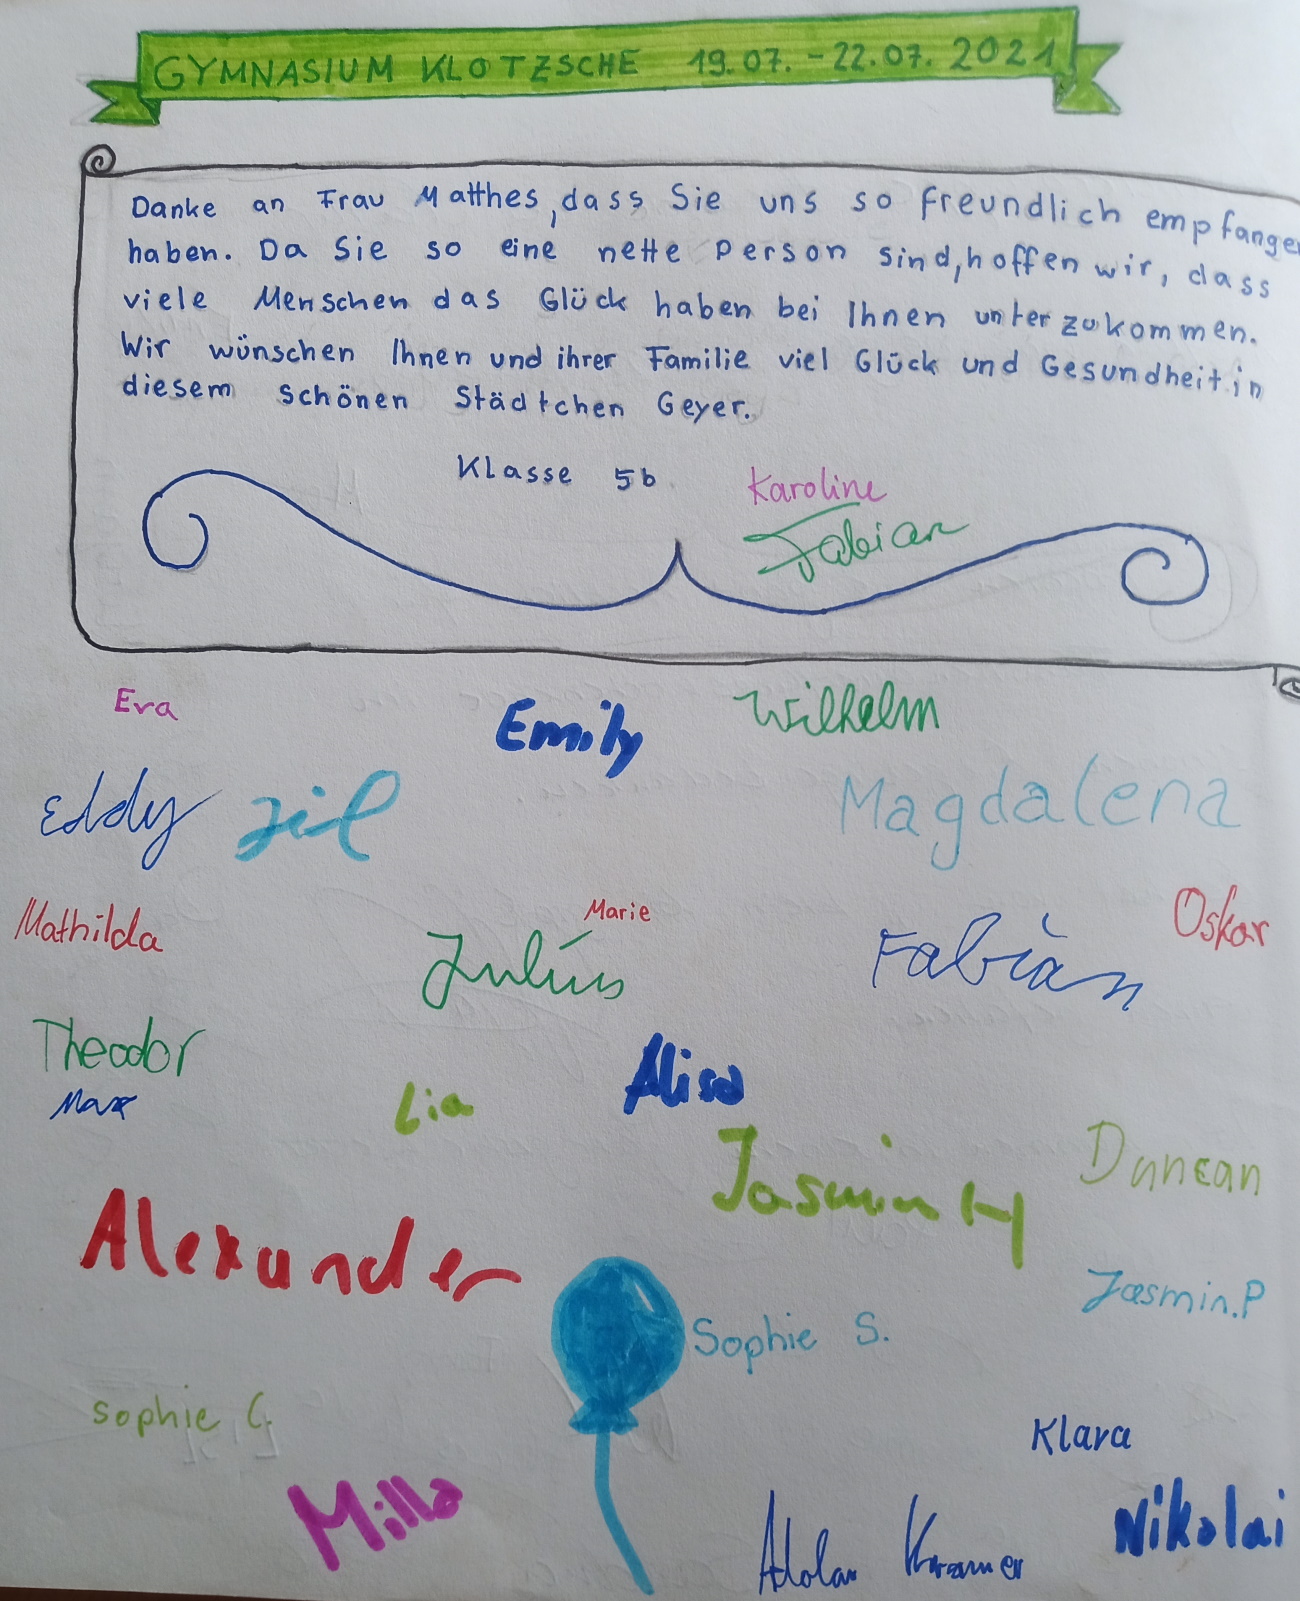 GYMNASIUM KLOTZSCHE 19.07. - 22.07. 2021
Danke an Frau Matthes, dass Sie uns so freundlich empfangen
haben. Da Sie so eine nette Person sind, hoffen wir, dass
viele Menschen das Glück haben bei Ihnen unterzukommen.
Wir wünschen Ihnen und ihrer Familie viel Glück und Gesundheit in
diesem schönen Städtchen Geyer.
Klasse 5b
Karoline
Fabian
Eva
Emily
Wilhelm
Eddy
Magdalena
Mathilda
Marie
Oskar
Julius
Fabian
Theodor
Max
Lia
Alisa
Jasmin H
Duncan
Alexander
Jasmin.P
Sophie S.
Sophie G
Klara
Milla
Nikolai
Kramer